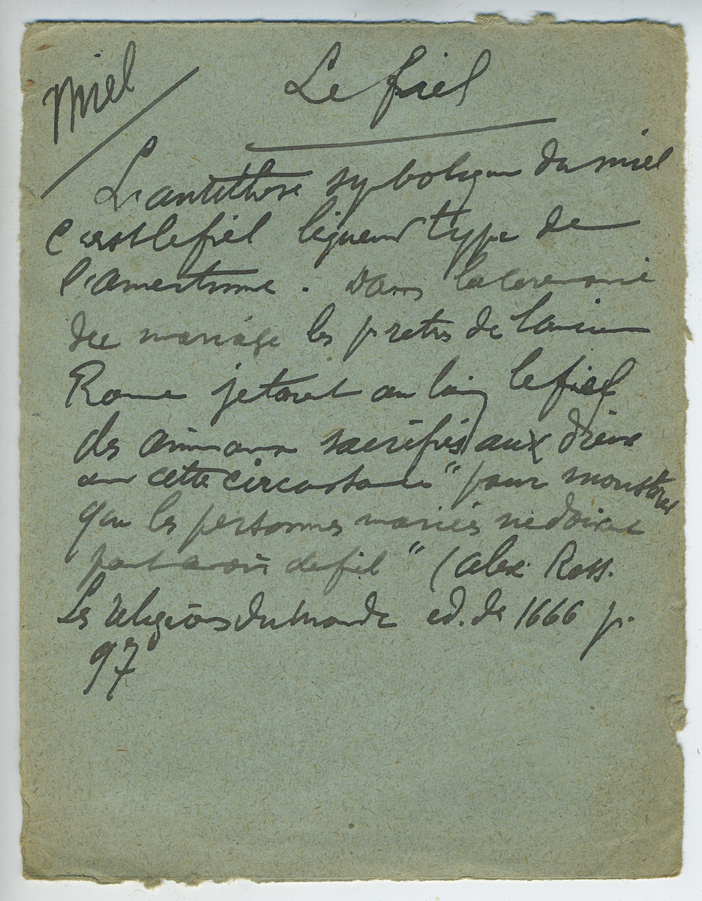 Miel
Le fiel
L'antithèse symbolique du miel
c'est le fiel liqueur type de
l'amertume. Dans la ceremonie
du mariage les pretres de l'ancienne
Rome jetaient au loin le fiel
des animaux sacrifiés aux dieux
en cette circonstance "pour monstrer
que les personnes mariées ne doivent
point avoir de fiel" (Alex. Ross.
Les religions du monde ed. de 1666 p.
97